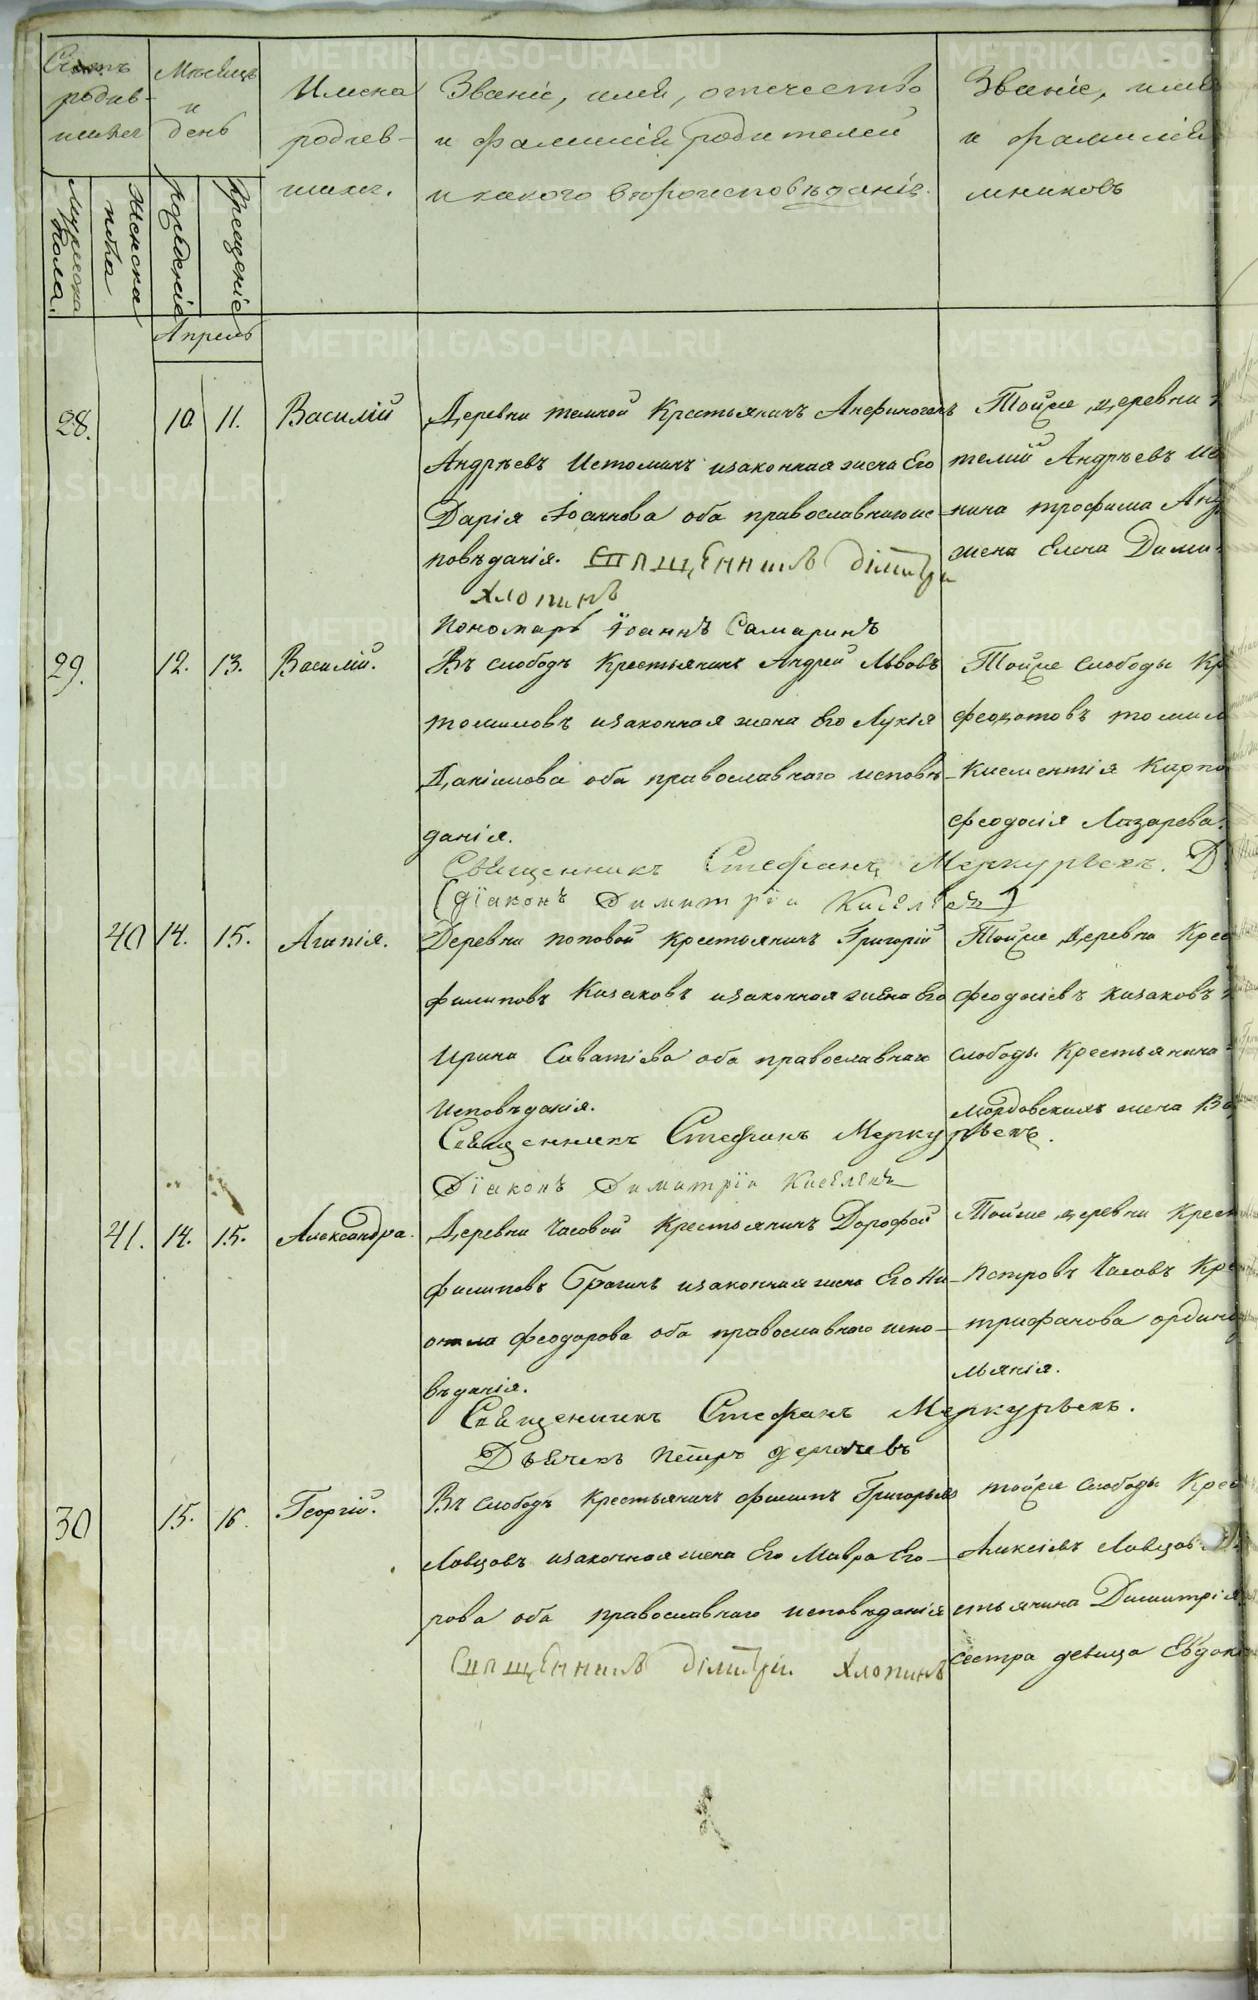 Счетъ родив-шихся
Мѣсяцъ и день
Имена родив-шихся.
Званіе, имя, отечество и фамилія родителей и какого вѣроисповѣданія.
Званіе, имя и фамилія мниковъ
Мужеска пола.
Женска пола
Рожденіе
Крещеніе
Апрель
28.
10
11.
Василій
Деревни темной Крестьянинъ Анфиногенъ
Андрѣевъ Истоминъ изаконная жена Его
Дарія Іоаннова оба православнаго ис-
повѣданія. Священникъ Димитрій
Хлопинъ
Пономарь Іоаннъ Самаринъ
Тойже деревни
телій Андрѣевъ Ис
нина трофима Анд
жена Елена Дими-
29.
12.
13.
Василій.
Въ слободѣ Крестьянинъ Андрей Львовъ
томиловъ изаконная жена Его Лукія
Даніилова оба православнаго исповѣ-
данія.
Священникъ Стефанъ Меркурьевъ. Д.
(діаконъ Димитрій Киселевъ)
Тойже слободы Кр
феодотовъ томил
Клементія Карпо
феодосія Лазарева.
40
14.
15.
Агапія.
Деревни поповой крестьянинъ Григорій
филиповъ Казаковъ изаконная жена Его
Ирина Саватіева оба православнаго
исповѣданія.
Священникъ Стефанъ Меркурьевъ.
Діаконъ Димитрій Киселевъ
Тойже деревни Крес
феодосіевъ казаковъ
слободы Крестьянина
мордовскихъ жена Ва
41.
14.
15.
Александра.
Деревни Часовой Крестьянинъ Дорофей
филиповъ Брагинъ изаконная жена Его Ни-
онила феодорова оба православнаго испо-
вѣданія.
Священникъ Стефанъ Меркурьевъ.
Дьячекъ Петръ дергачевъ
Тойже деревни Крест
Петровъ Часовъ Кре
трифанова ордина
мьянія.
30
15.
16.
Георгій.
Въ слободѣ крестьянинъ филипъ Григорьевъ
Ловцовъ изаконная жена Его Мавра Его-
рова оба православнаго исповѣданія
Священникъ Димитрій Хлопинъ
тойже слободы Крес
Алексіевъ Ловцовъ
стьянина Димитрія
сестра девица Евдок
METRIKI.GASO-URAL.RU